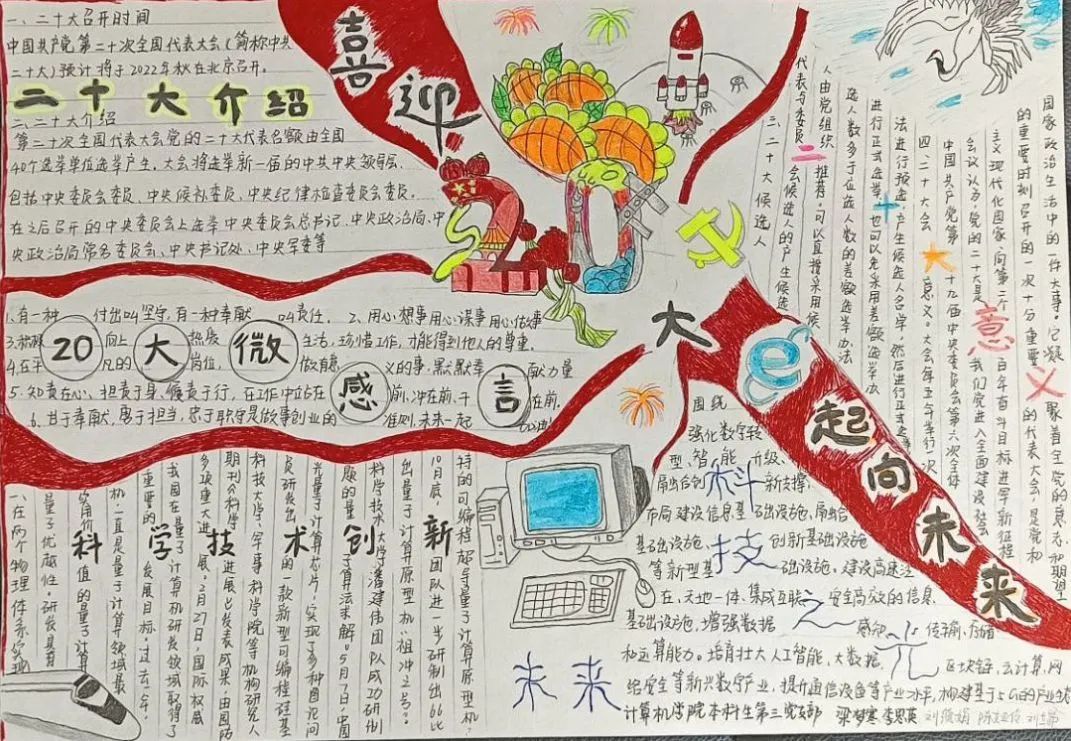 喜迎
20
大
e
起向未来
一、二十大召开时间
中国共产党第二十次全国代表大会(简称中共
二十大)预计将于2022年秋在北京召开。
二十大介绍
二、二十大介绍
第二十次全国代表大会党的二十大代表名额由全国
40个选举单位选举产生。大会将选举新一届的中共中央领导层,
包括中央委员会委员、中央候补委员、中央纪律检查委员会委员。
在之后召开的中央委员会上选举中央委员会总书记、中央政治局、中
央政治局常务委员会、中央书记处、中央军委等
三、二十大候选人
代表与委员会候选人的产生候选
人由党组织推荐,可以直接采用候
选人数多于应选人数的差额选举办法
进行正式选举 也可以先采用差额选举办
法进行预选,产生候选人名单,然后进行正式选
二十大意义
四、二十大会 意义。大会每五年举行一次
中国共产党第十九届中央委员会第六次全体
会议认为,党的二十大是我们党进入全面建设社会
主义现代化国家、向第二个百年奋斗目标进军新征程
的重要时刻召开的一次十分重要的代表大会,是党和
国家政治生活中的一件大事。它凝聚着全党的意志和期望
20大微感言
1.有一种 付出叫坚守,有一种奉献 叫责任。 2、用心想事用心谋事用心做事
3. 向上 热爱 生活,珍惜工作,才能得到他人的尊重。
4.在平 凡的 岗位, 做有意 义的事,默默奉 献力量
5.知责在心、担责于身、履责于行,在工作中站在 前、冲在前、干 在前。
6.甘于奉献、勇于担当、忠于职守是做事创业的 准则,未来一起
科学技术创新
一、在两个物理体系实现
量子优越性。研发具有
实用价值的量子计算
机一直是量子计算领域最
重要的发展目标。过去一年,
我国在量子计算机研发领域取得了
多项重大进展。2月27日,国际权威
期刊《科学·进展》发表成果,由国防
科技大学、军事科学院等机构研究人
员研发出的一款新型可编程硅基
光量子计算芯片,实现了多种图论问
题的量子算法求解。5月7日,中国
科学技术大学潘建伟团队成功研制
出量子计算原型机“祖冲之号”。
10月底,新团队进一步研制出66比
特的可编程超导量子计算原型机,
科技之元
未来
围绕
强化数字转
型、智能升级、
融合创新支撑,
布局建设信息基础设施、融合
基础设施、创新基础设施
等新型基础设施。建设高速泛
在、天地一体、集成互联、安全高效的信息
基础设施,增强数据感知、传输、存储
和运算能力。培育壮大人工智能、大数据、
区块链、云计算、网
络安全等新兴数字产业,提升通信设备等产业水平,构建基于5G的
计算机学院本科生第三党支部 梁梦寒 李思英